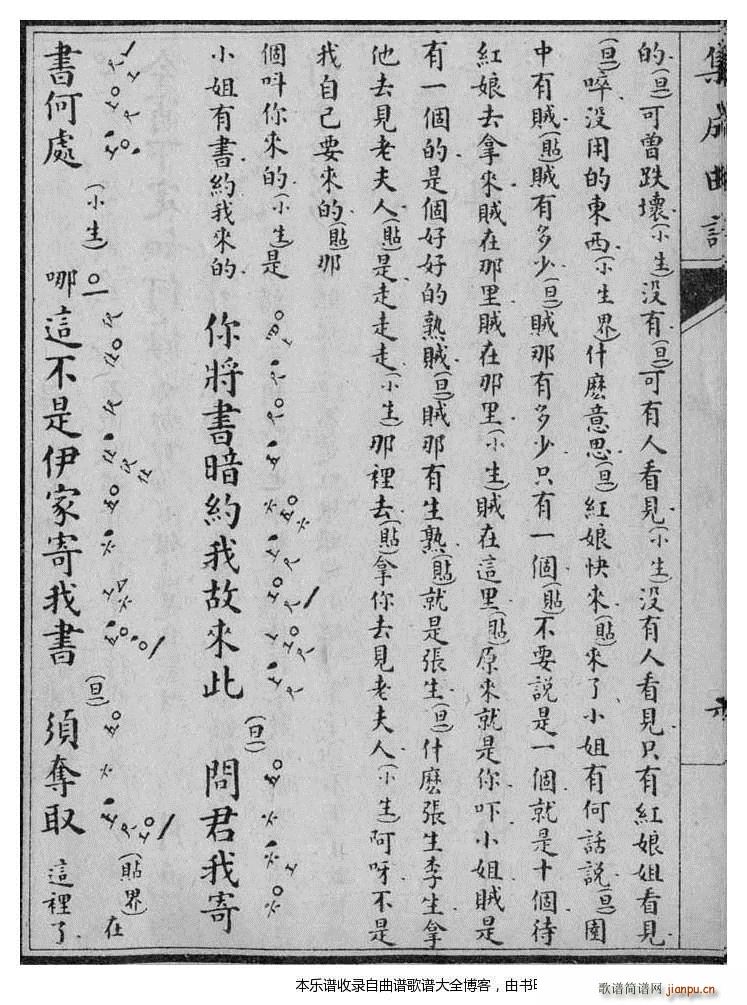 集成曲譜
的(旦)可曾跌壞(小生)没有(旦)可有人看見(小生)没有人看見只有紅娘姐看見
(旦)啐没用的東西(小生界)什麽意思(旦)紅娘快來(貼)來了小姐有何話說(旦)園
中有賊(貼)賊有多少(旦)賊那有多少只有一個(貼)不要説是一個就是十個待
紅娘去拿來賊在那里賊在那里(小生)賊在這里(貼)原來就是你吓小姐賊是
有一個的是個好好的熟賊(旦)賊那有生熟(貼)就是張生(旦)什麽張生李生拿
他去見老夫人(貼)是走走走(小生)那裡去(貼)拿你去見老夫人(小生)阿呀不是
我自己要來的(貼)那
個呌你來的(小生)是
小姐有書約我來的
你將書暗約我故來此(旦)問君我寄
書何處(小生)哪這不是伊家寄我書(旦)須奪取(貼界)在
這裡了
本乐谱收录自曲谱歌谱大全博客，由书
歌谱简谱网
jianpu.cn